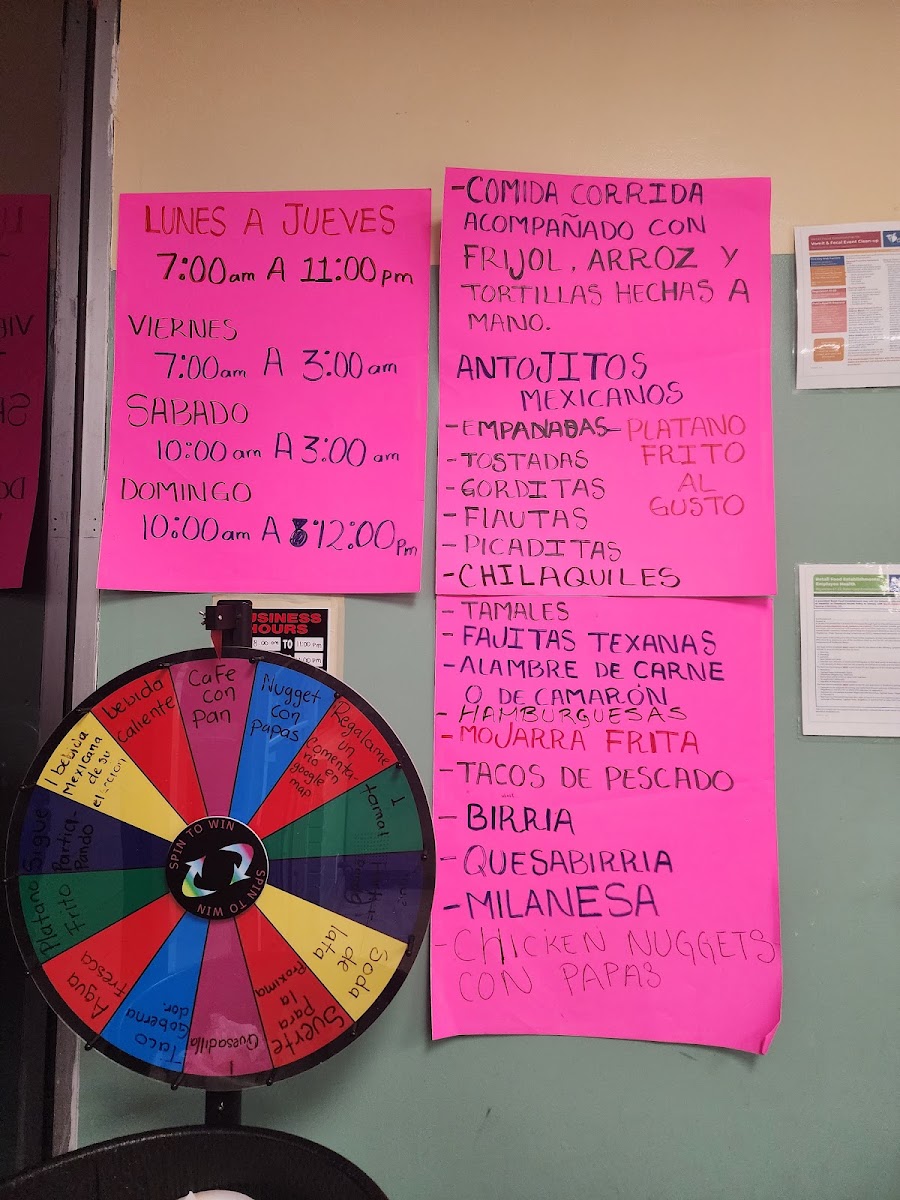 LUNES A JUEVES
7:00am A 11:00pm
VIERNES
7:00am A 3:00am
SABADO
10:00am A 3:00am
DOMINGO
10:00am A 12:00Pm
-COMIDA CORRIDA
ACOMPAÑADO CON
FRIJOL, ARROZ Y
TORTILLAS HECHAS A
MANO.
ANTOJITOS
MEXICANOS
-EMPANADAS
-TOSTADAS
-GORDITAS
-FLAUTAS
-PICADITAS
-CHILAQUILES
-PLATANO
FRITO
AL
GUSTO
-TAMALES
-FAJITAS TEXANAS
-ALAMBRE DE CARNE
O DE CAMARÓN
-HAMBURGUESAS
-MOJARRA FRITA
-TACOS DE PESCADO
-BIRRIA
-QUESABIRRIA
-MILANESA
-CHICKEN NUGGETS
CON PAPAS
BUSINESS
HOURS
TO
Cafe
con
pan
Nugget
con
papas
Regalame
un
comenta-
rio en
google
map
1
tamal
Soda
de
lata
Suerte
Para
la
Proxima
1
Quesadilla
Taco
Goberna
dor.
Agua
fresca
Platano
Frito
Sigue
Partici-
Pando
1 bebida
Mexicana
de su
elección
bebida
caliente
SPIN TO WIN
SPIN TO WIN
Vomit & Fecal Event Clean-up
Retail Food Establishment
Employee Health